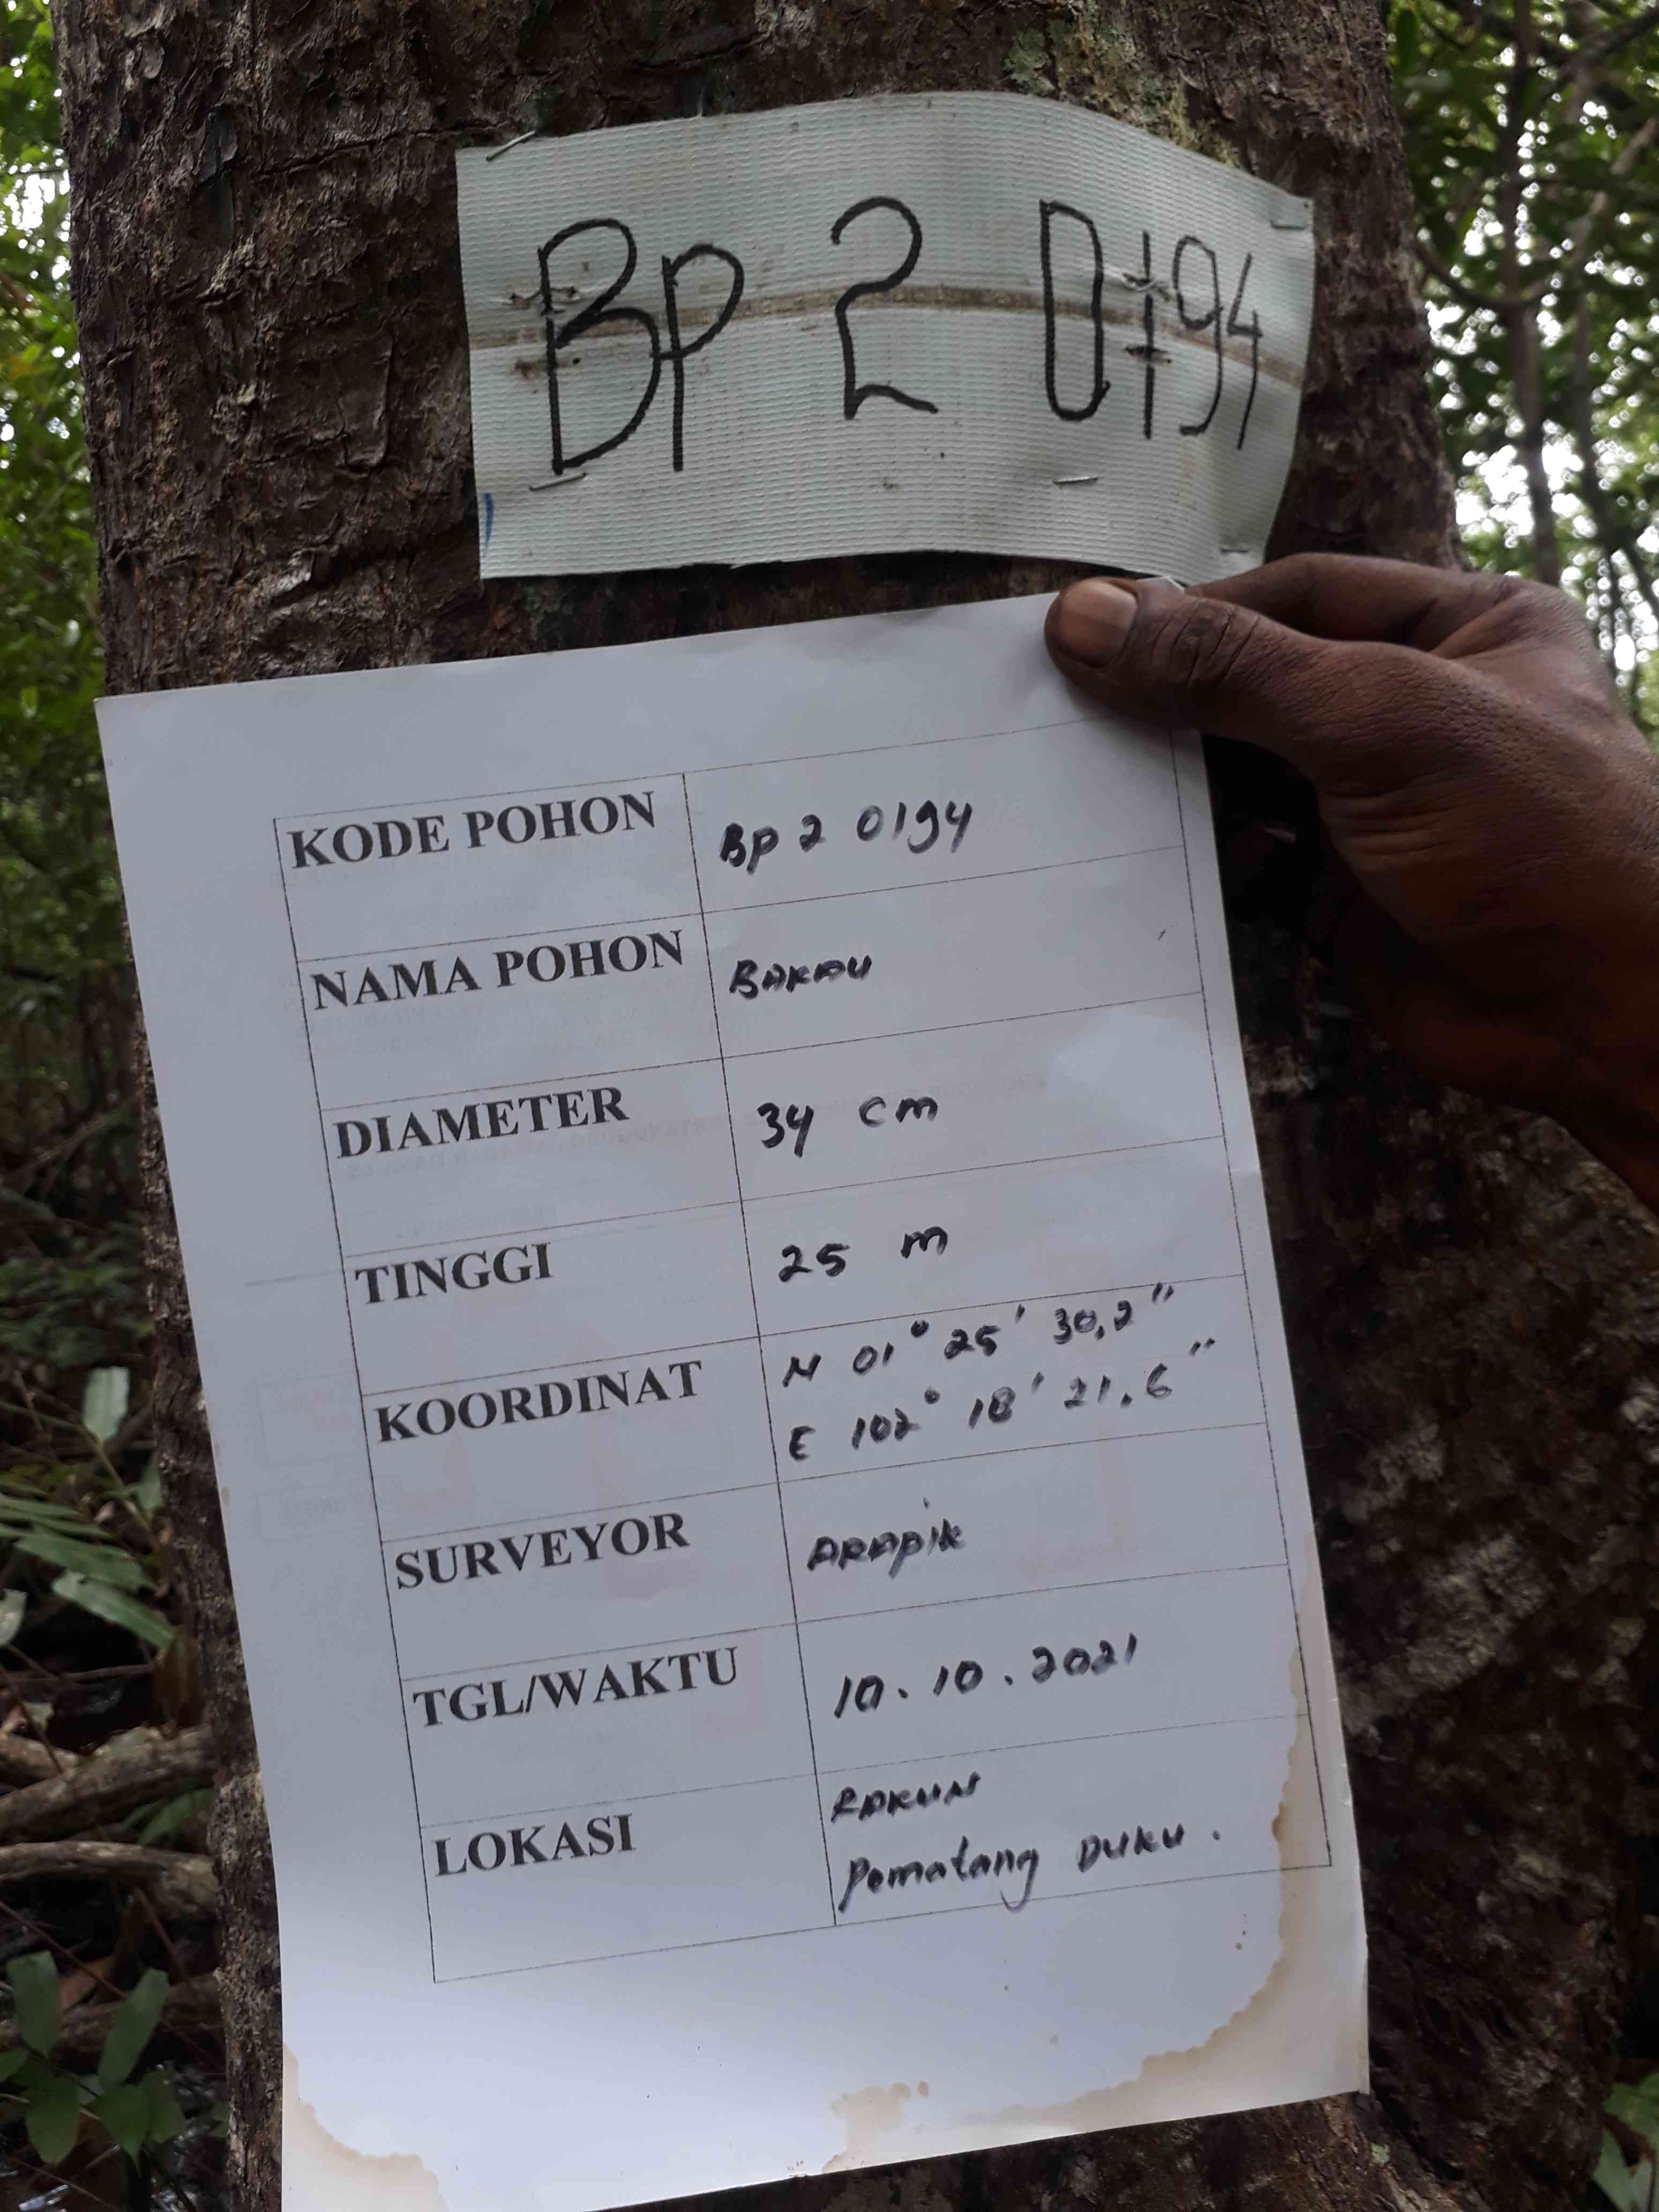 BP 2 0194
KODE POHON BP 2 0194
NAMA POHON BAKAU
DIAMETER 34 cm
TINGGI 25 m
KOORDINAT N 01° 25' 30,2"
E 102° 18' 21.6"
SURVEYOR ARAPIK
TGL/WAKTU 10.10.2021
LOKASI RAKUN
Pematang DUKU.